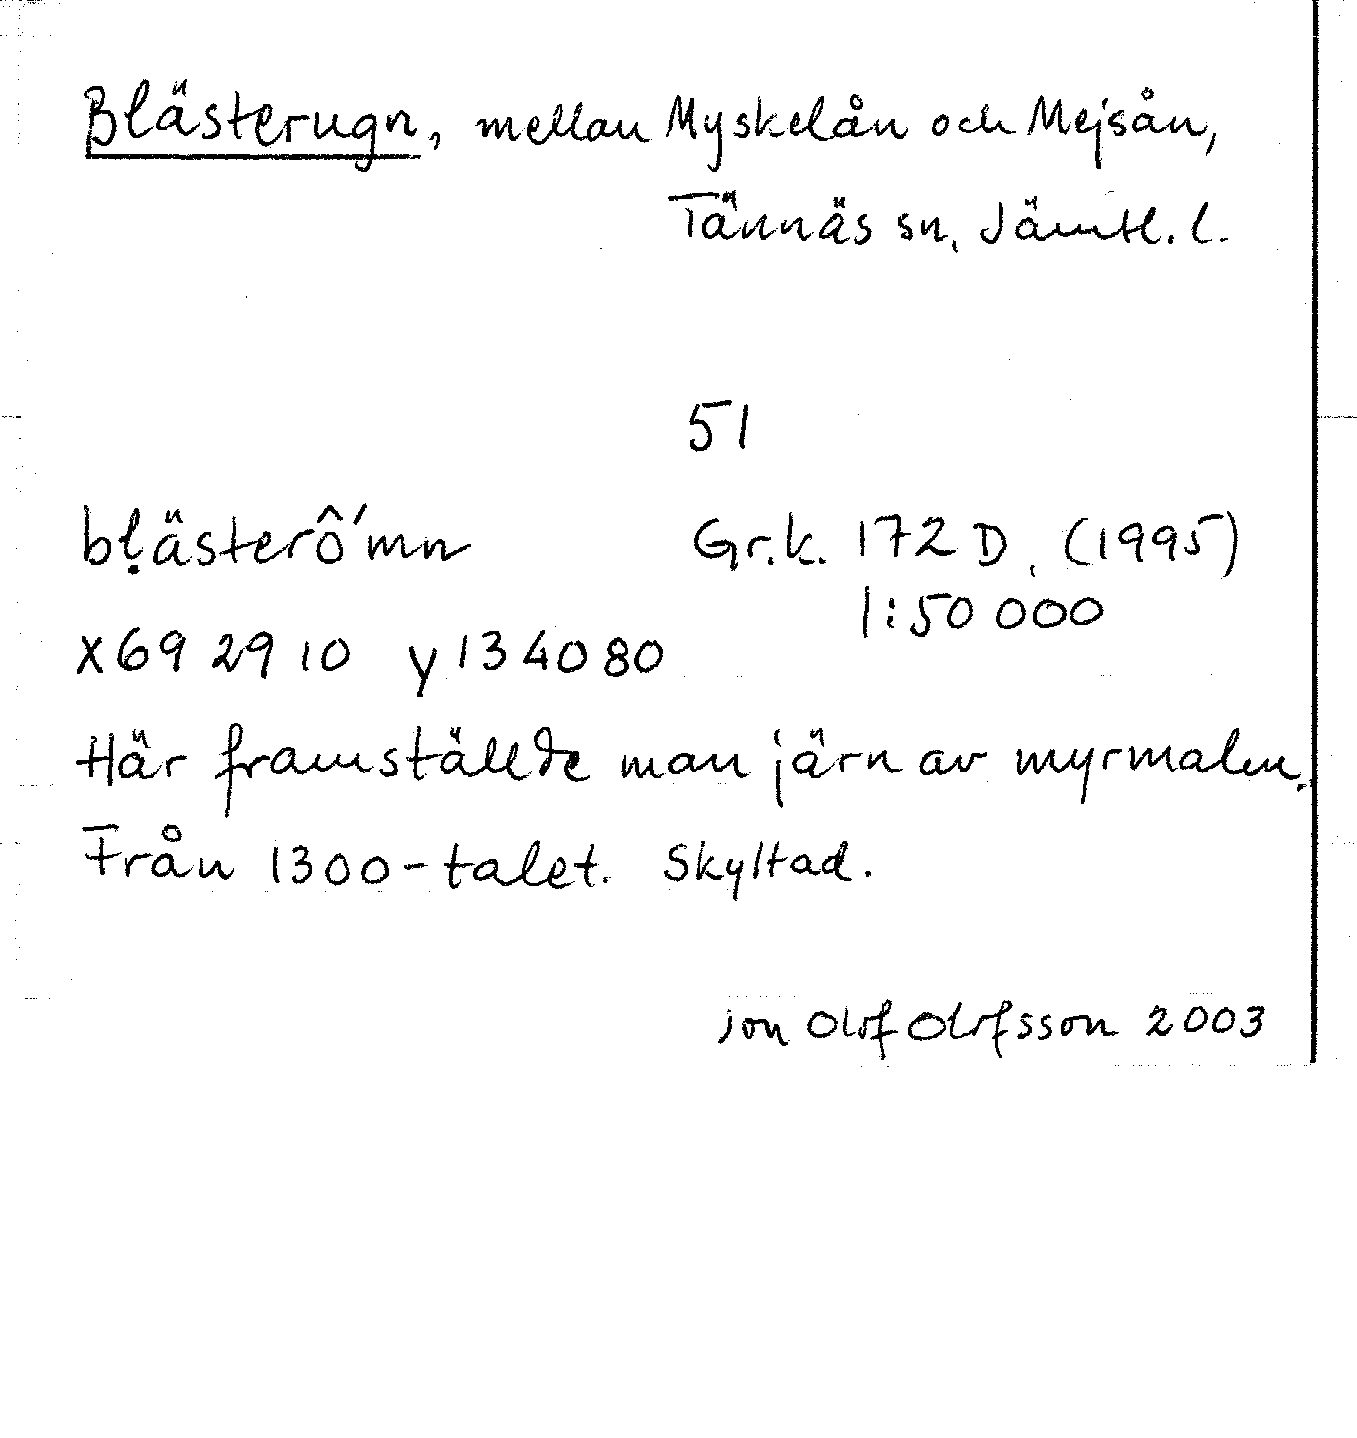 Blästerugn, mellan Myskelån och Mejsån,
Tännäs sn, Jämtl. l.
51
bḷästerô´mn
Gr.k. 172 D, (1995)
1:50 000
x69 29 10 y134080
Här framställde man järn av myrmalm.
Från 1300-talet. Skyltad.
Jon Olof Olofsson 2003